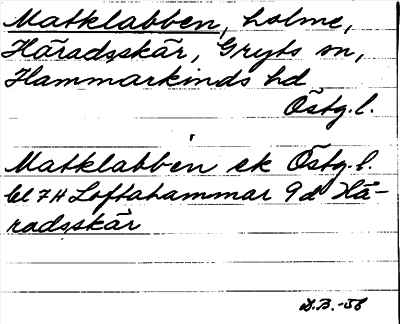 Matklabben, holme,
Häradsskär, Gryts sn,
Hammarkinds hd
Östg.l.
Matklabben ek Östg.l.
bl 7H Loftahammar 9d Hä-
radsskär
D.B.-56